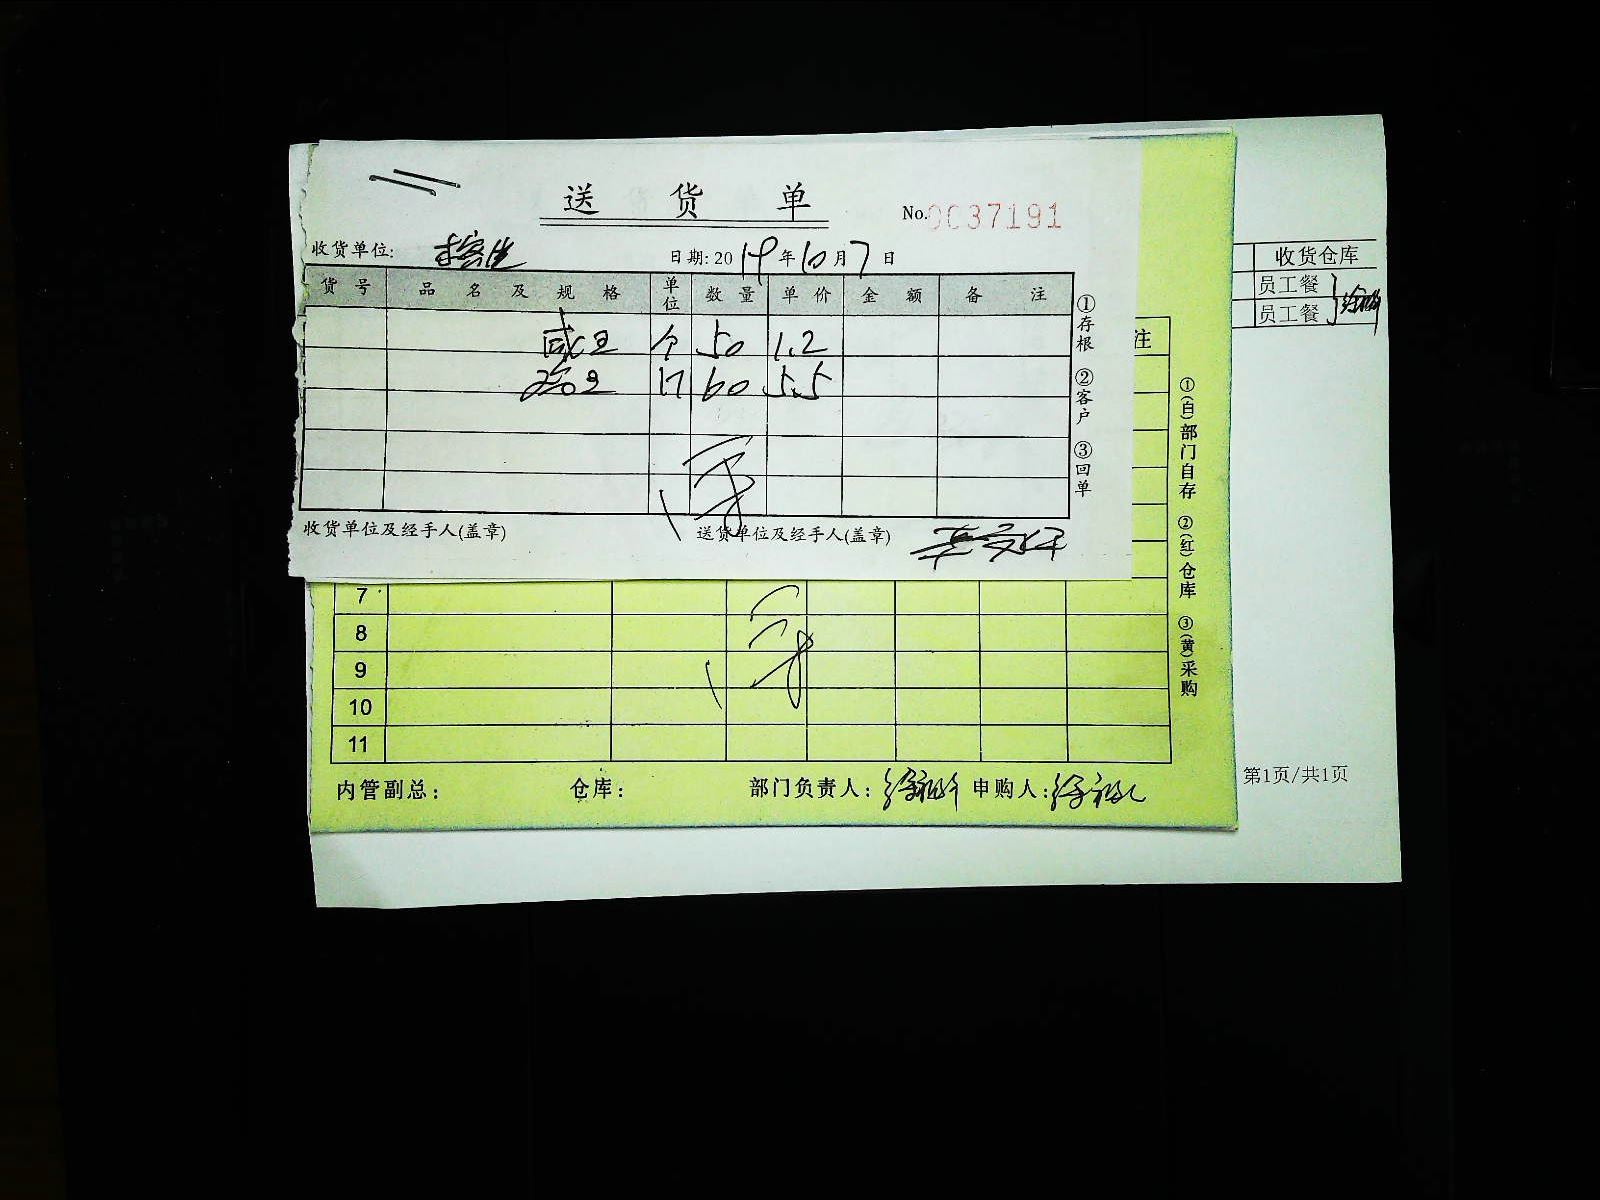 送 货 单
No. 0037191
收货单位:
日期: 2019年10月7日
货号 品名及规格 单位 数量 单价 金额 备注
个 50 1.2
60 5.5
收货单位及经手人(盖章) 送货单位及经手人(盖章)
①存根 ②客户 ③回单
注
7
8
9
10
11
内管副总: 仓库: 部门负责人: 申购人:
①(白)部门自存 ②(红)仓库 ③(黄)采购
收货仓库
员工餐
员工餐
第1页/共1页